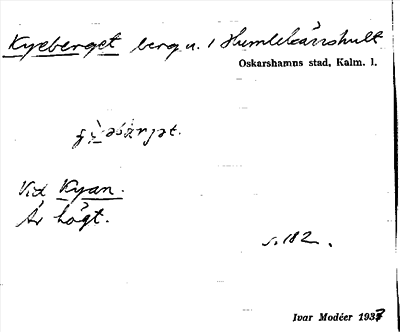 Kyeberget berg u. / Humlekärrshult
Oskarshamns stad, Kalm. l.
Vid Kyan.
Är högt.
s. 182.
Ivar Modéer 1937